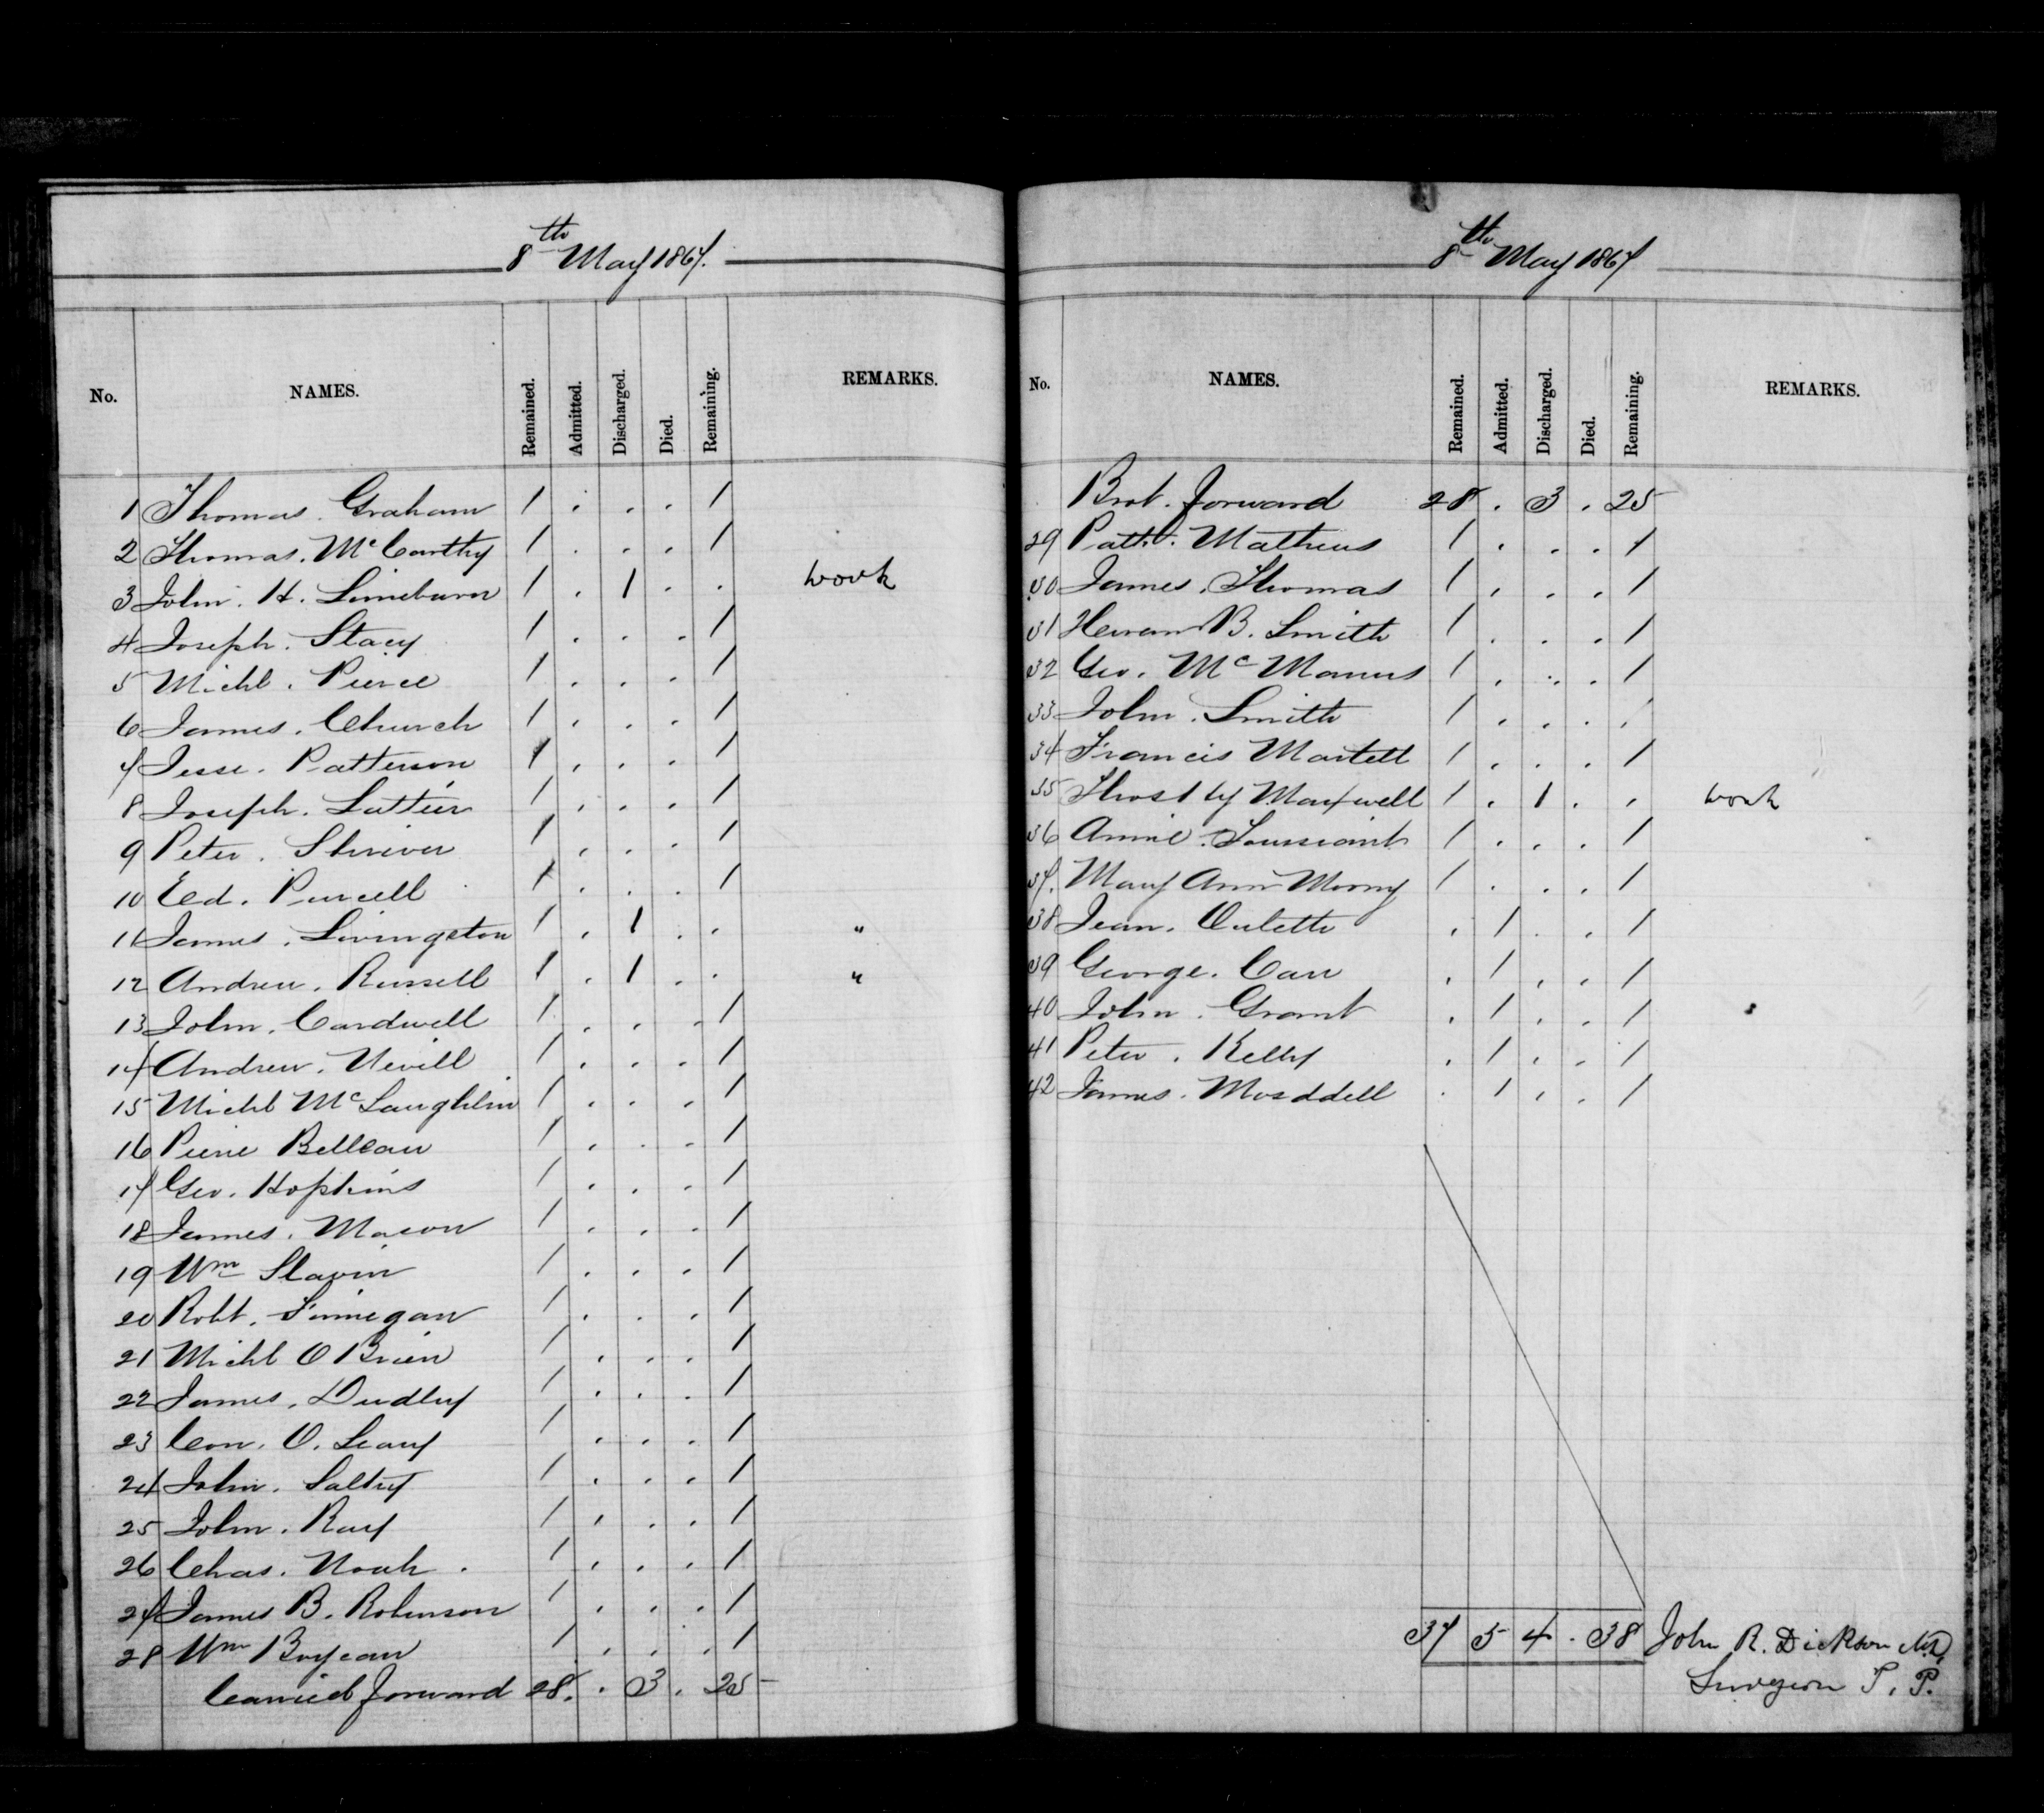 8th May 1867.
No. NAMES. Remained. Admitted. Discharged. Died. Remaining. REMARKS.
1 Thomas. Graham 1 . . . 1
2 Thomas. McCarthy 1 . . . 1
3 John. H. Limeburn 1 . 1 . . work
4 Joseph. Stacy 1 . . . 1
5 Michl. Pierce 1 . . . 1
6 James. Church 1 . . . 1
7 Jesse. Patterson 1 . . . 1
8 Joseph. Lattier 1 . . . 1
9 Peter. Shriver 1 . . . 1
10 Ed. Purcell 1 . . . 1
11 James. Livingston 1 . 1 . . "
12 Andrew. Russell 1 . 1 . . "
13 John. Cardwell 1 . . . 1
14 Andrew. Nevill 1 . . . 1
15 Michl McLaughlin 1 . . . 1
16 Pierre Belleau 1 . . . 1
17 Geo. Hopkins 1 . . . 1
18 James. Mason 1 . . . 1
19 Wm Slavin 1 . . . 1
20 Robt. Finnegan 1 . . . 1
21 Michl O Brien 1 . . . 1
22 James. Dudley 1 . . . 1
23 Con. O. Leary 1 . . . 1
24 John. Saltry 1 . . . 1
25 John. Ray 1 . . . 1
26 Chas. Noah. 1 . . . 1
27 James B. Robinson 1 . . . 1
28 Wm Boyeau 1 . . . 1
Carried forward 28. . 3 . 25
8th May 1867
No. NAMES. Remained. Admitted. Discharged. Died. Remaining. REMARKS.
Brot. forward 28 . 3 . 25
29 Patk. Mathews 1 . . . 1
30 James. Thomas 1 . . . 1
31 Heiram B. Smith 1 . . . 1
32 Geo. McManus 1 . . . 1
33 John. Smith 1 . . . 1
34 Francis Martell 1 . . . 1
35 Maxwell 1 . 1 . . work
36 Annie. Toussaint 1 . . . 1
37. Mary Ann Morny 1 . . . 1
38 Jean. Oulette . 1 . . 1
39 George. Carr . 1 . . 1
40 John. Grant . 1 . . 1
41 Peter. Kelly . 1 . . 1
42 James. Mosddell . 1 . . 1
37 5 4 . 38 John R. Dickson M.D,
Surgeon P. P.